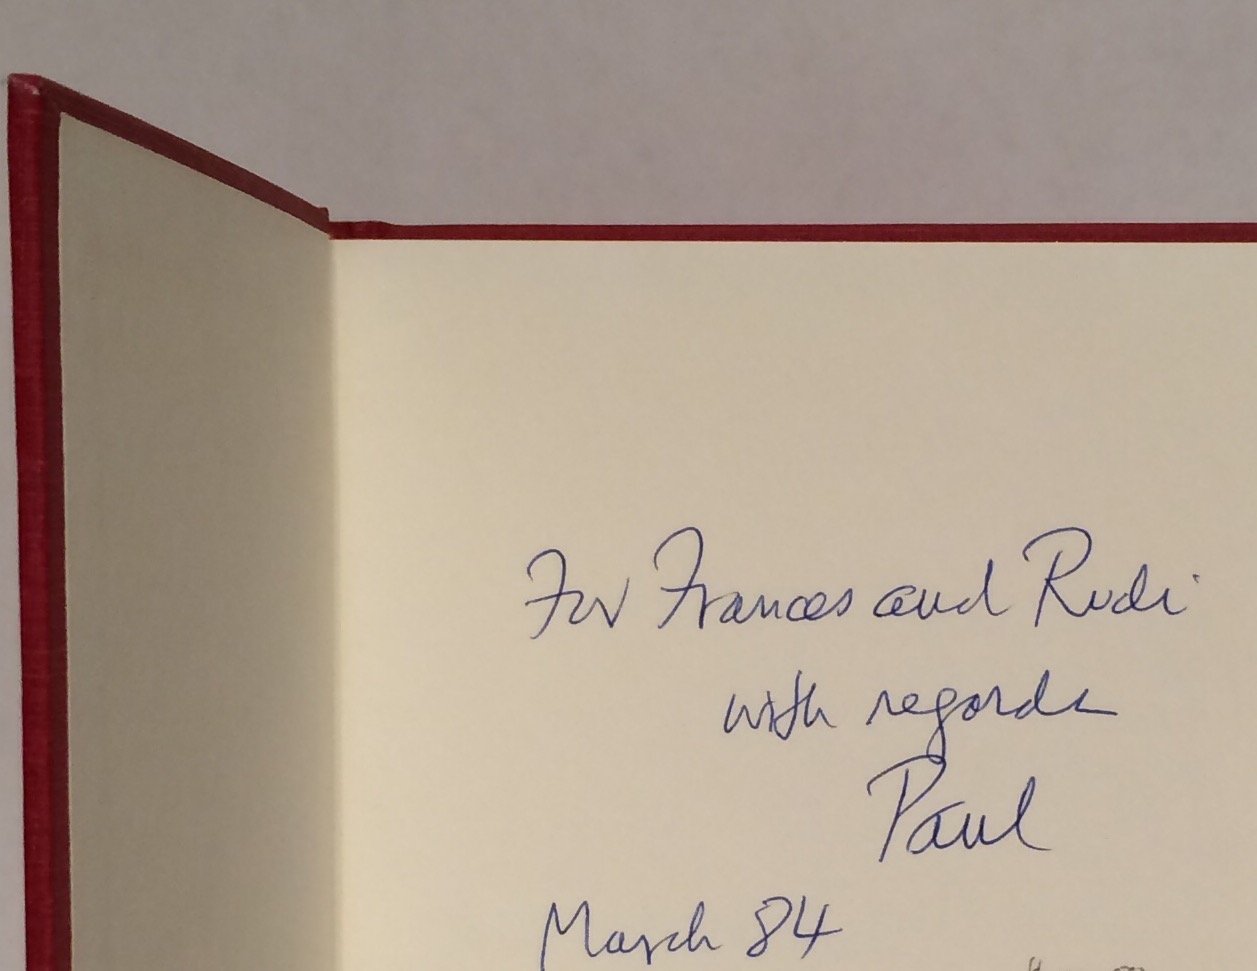 For Frances and Rudi
with regards
Paul
March 84